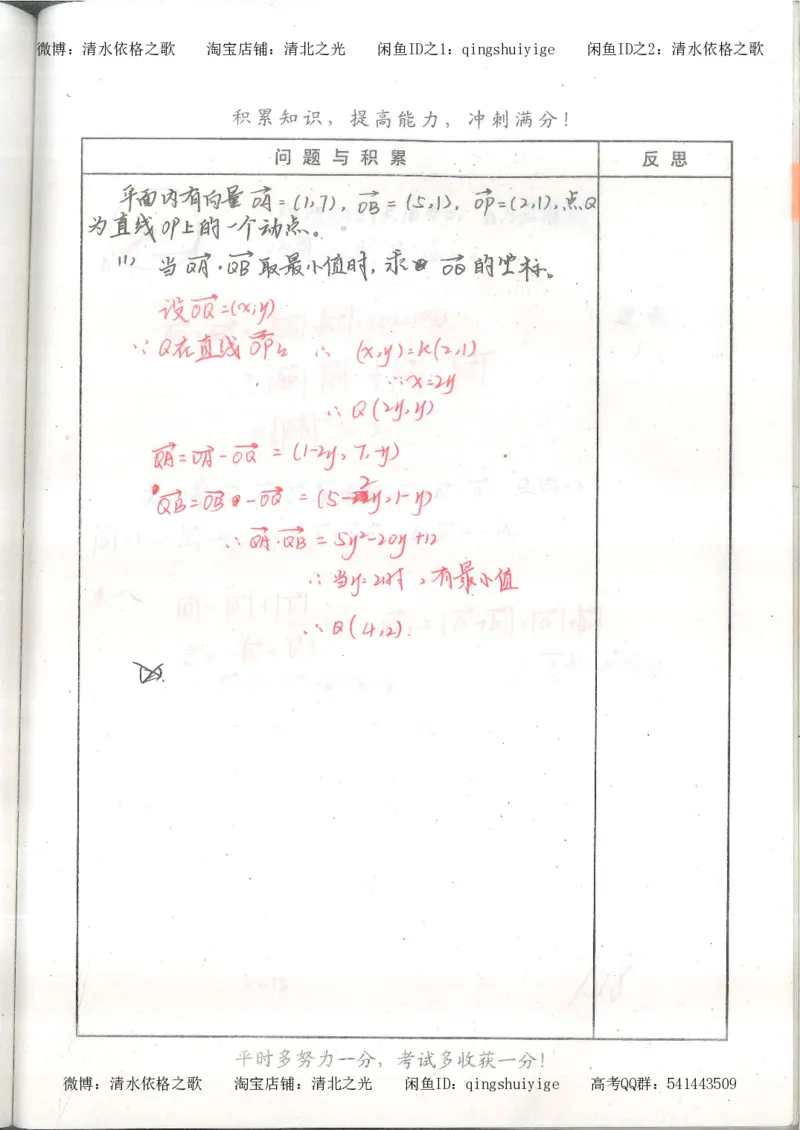 微博：清水依格之歌 淘宝店铺：清北之光 闲鱼ID之1：qingshuiyige 闲鱼ID之2：清水依格之歌
积累知识，提高能力，冲刺满分！
问题与积累 反思
平面内有向量 OA=(1,7)，OB=(5,1)，OP=(2,1)，点Q
为直线OP上的一个动点。
(1) 当 QA·QB 取最小值时，求 OQ 的坐标。
设OQ=(x,y)
∵Q在直线OP上 ∴ (x,y)=k(2,1)
∴x=2y
∴Q(2y,y)
QA=OA-OQ=(1-2y, 7-y)
QB=OB-OQ=(5-2y,1-y)
∴QA·QB=5y²-20y+12
∴当y=2时，有最小值
∴Q(4,2).
平时多努力一分，考试多收获一分！
微博：清水依格之歌 淘宝店铺：清北之光 闲鱼ID：qingshuiyige 高考QQ群：541443509